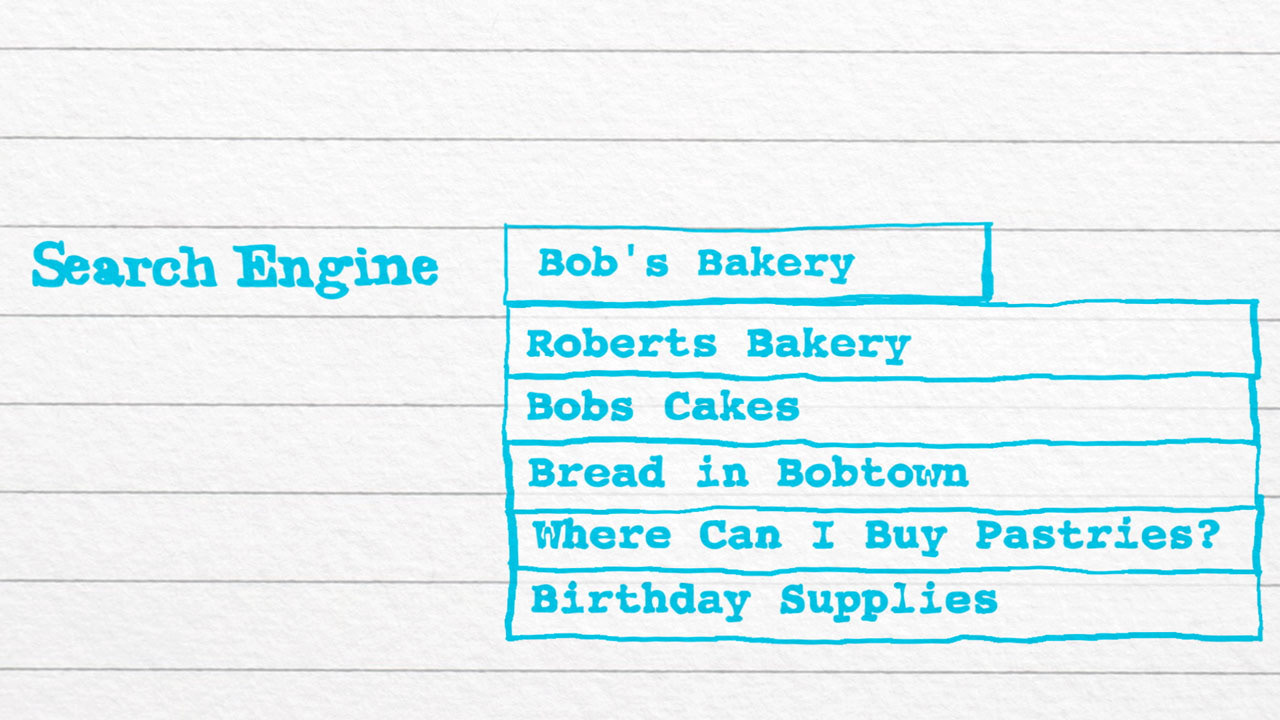 Search Engine
Bob's Bakery
Roberts Bakery
Bobs Cakes
Bread in Bobtown
Where Can I Buy Pastries?
Birthday Supplies